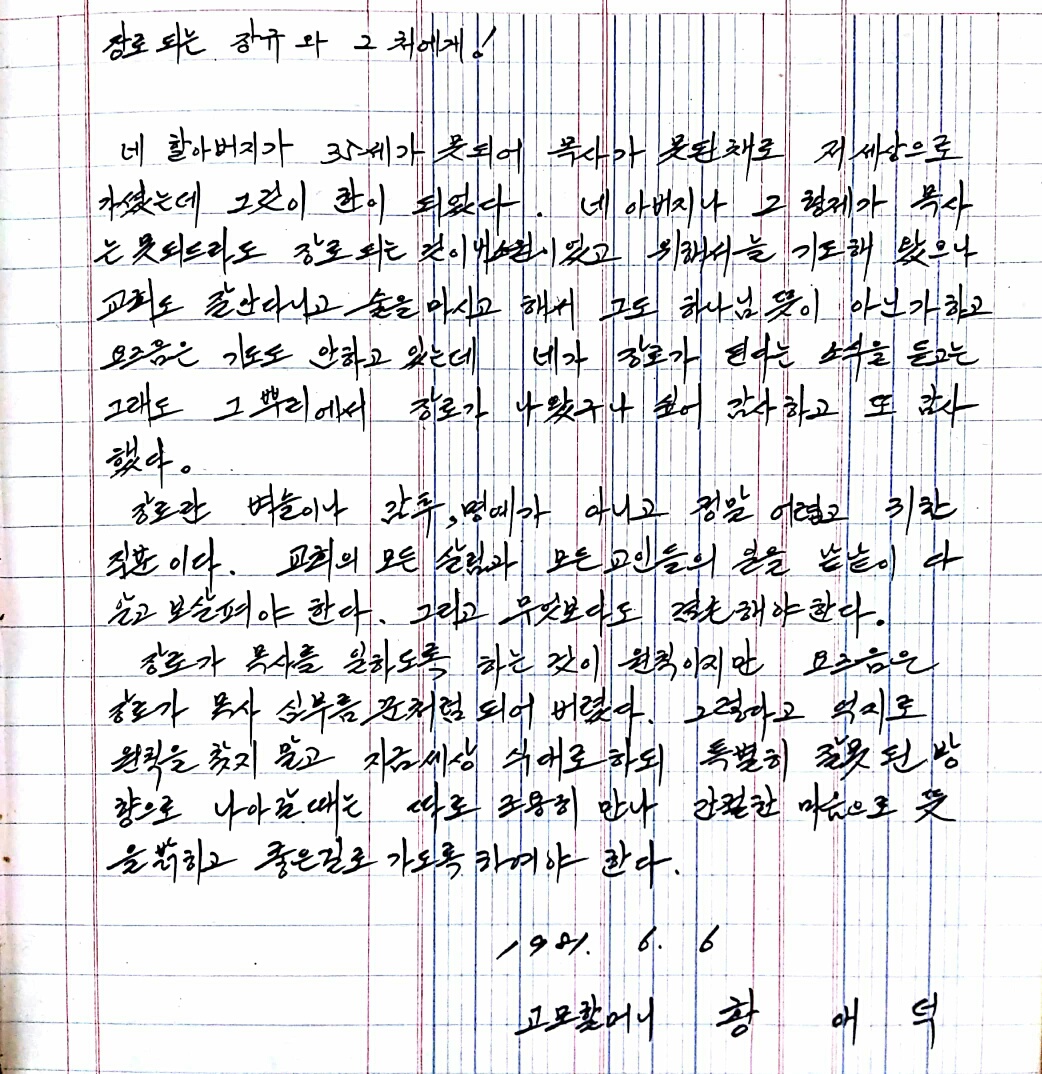 장로 되는 장규와 그 처에게!
네 할아버지가 35세가 못되어 목사가 못된채로 저 세상으로
가셨는데 그것이 한이 되었다. 네 아버지나 그 형제가 목사
는 못되드라도 장로 되는 것이 내 소원이었고 위해서 늘 기도해 왔으나
교회도 잘 안다니고 술을 마시고 해서 그도 하나님 뜻이 아닌가 하고
요즈음은 기도도 안하고 있는데 네가 장로가 된다는 소식을 듣고는
그래도 그 뿌리에서 장로가 나왔구나 싶어 감사하고 또 감사
했다.
장로란 벼슬이나 감투, 명예가 아니고 정말 어렵고 귀한
직분이다. 교회의 모든 살림과 모든 교인들의 일을 낱낱이 다
알고 보살펴야 한다. 그리고 무엇보다도 겸손해야 한다.
장로가 목사를 일하도록 하는 것이 원칙이지만 요즈음은
장로가 목사 심부름꾼처럼 되어 버렸다. 그렇다고 억지로
원칙을 찾지 말고 지금 세상 식대로 하되 특별히 잘못된 방
향으로 나아갈때는 따로 조용히 만나 간절한 마음으로 뜻
을 밝히고 좋은길로 가도록 하여야 한다.
1981. 6. 6
고모할머니 황 애 덕